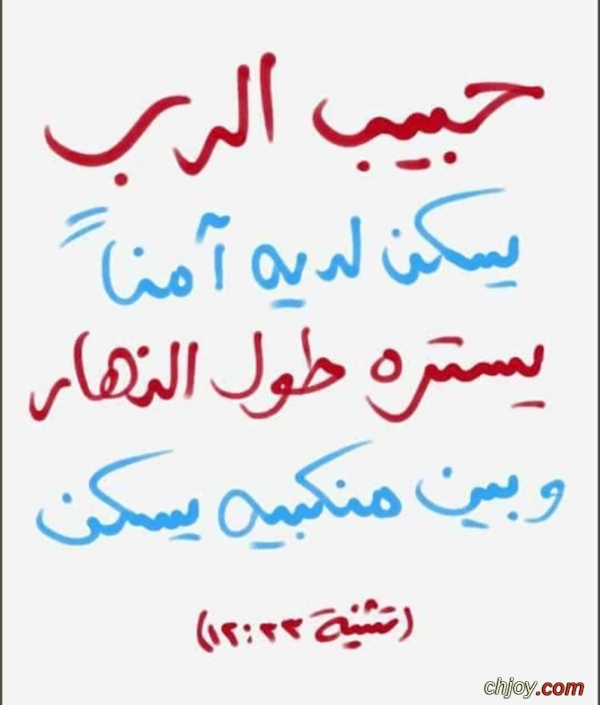 حبيب الرب
يسكن لديه آمناً
يستره طول النهار
وبين منكبيه يسكن
(تثنية ٣٣:١٢)
chjoy.com